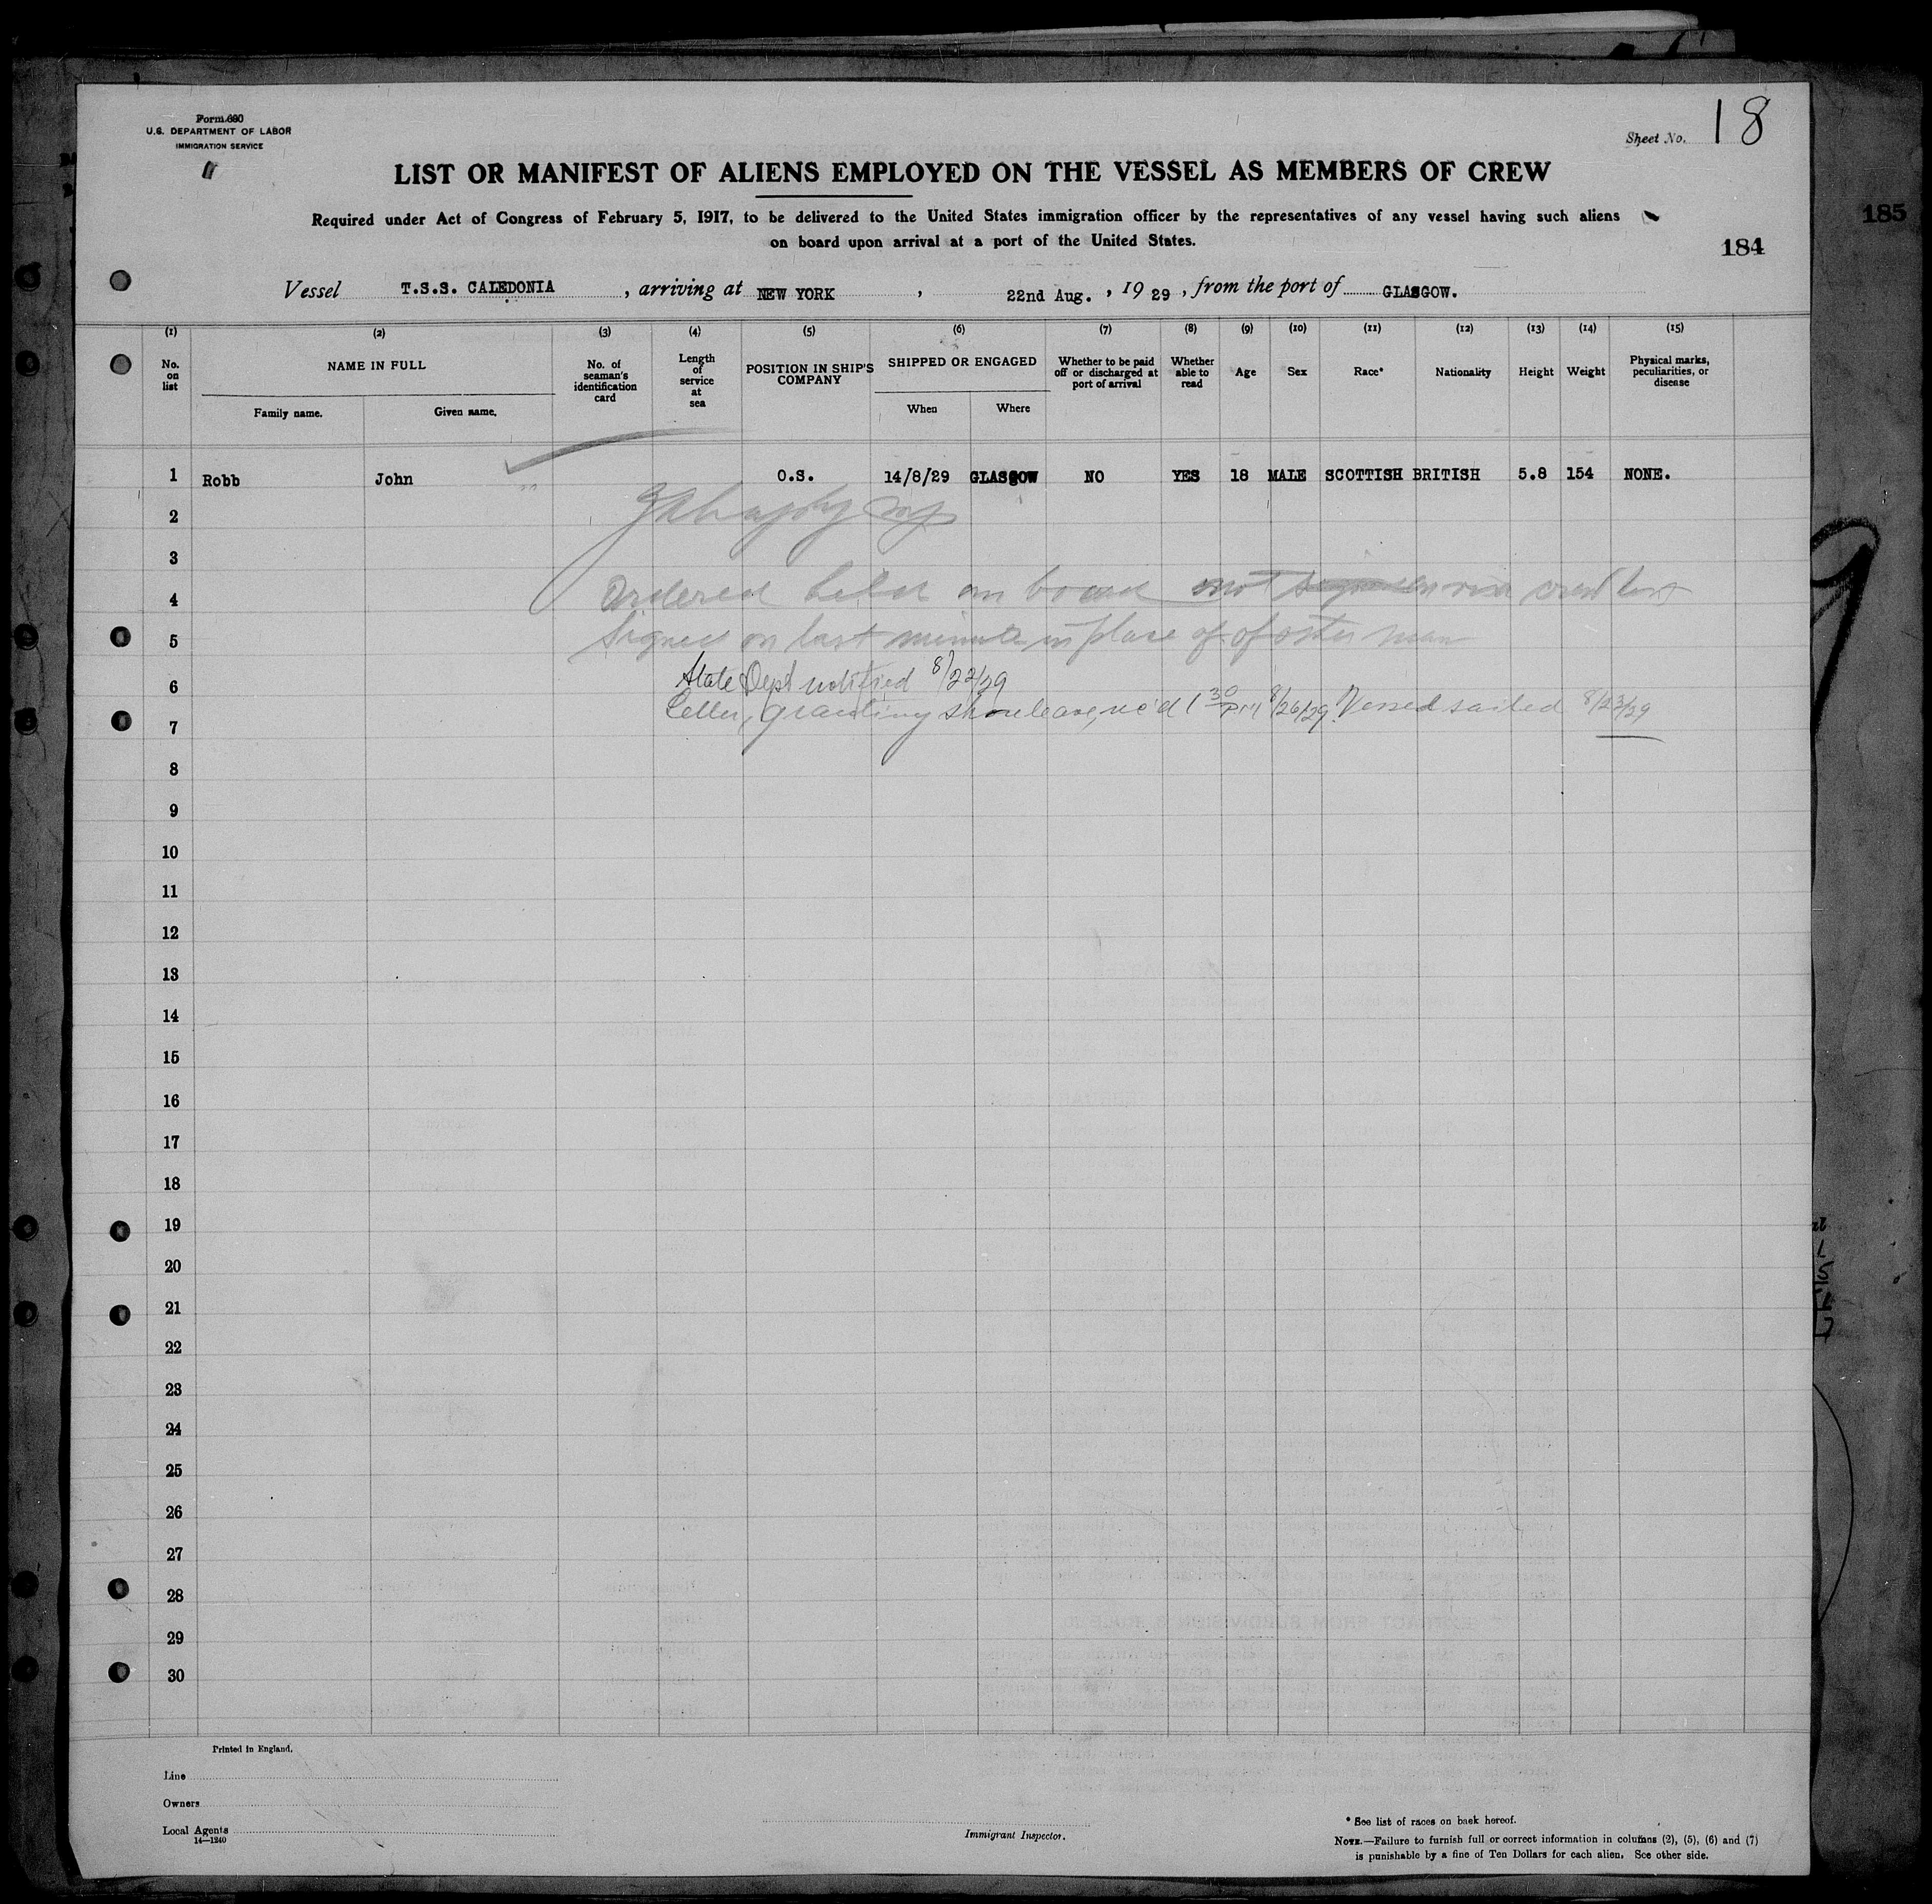 Form 680
U.S. DEPARTMENT OF LABOR
IMMIGRATION SERVICE
Sheet No. 18
LIST OR MANIFEST OF ALIENS EMPLOYED ON THE VESSEL AS MEMBERS OF CREW
Required under Act of Congress of February 5, 1917, to be delivered to the United States immigration officer by the representatives of any vessel having such aliens
on board upon arrival at a port of the United States.
185
184
Vessel T.S.S. CALEDONIA, arriving at NEW YORK, 22nd Aug., 1929, from the port of GLASGOW.
(1) (2) (3) (4) (5) (6) (7) (8) (9) (10) (11) (12) (13) (14) (15)
No. on list
NAME IN FULL
Family name. Given name.
No. of seaman's identification card
Length of service at sea
POSITION IN SHIP'S COMPANY
SHIPPED OR ENGAGED
When Where
Whether to be paid off or discharged at port of arrival
Whether able to read
Age
Sex
Race*
Nationality
Height
Weight
Physical marks, peculiarities, or disease
1 Robb John O.S. 14/8/29 GLASGOW NO YES 18 MALE SCOTTISH BRITISH 5.8 154 NONE.
2
3
4 Ordered held on board not on crew list
5 Signed on last minute in place of of other man
6 State Dept notified 8/22/29
7 Letter, granting shore leave, rec'd 1 30 PM 8/26/29. Vessel sailed 8/23/29
8
9
10
11
12
13
14
15
16
17
18
19
20
21
22
23
24
25
26
27
28
29
30
Printed in England.
Line
Owners
Local Agents
14—1240
Immigrant Inspector.
* See list of races on back hereof.
NOTE.—Failure to furnish full or correct information in columns (2), (5), (6) and (7)
is punishable by a fine of Ten Dollars for each alien. See other side.